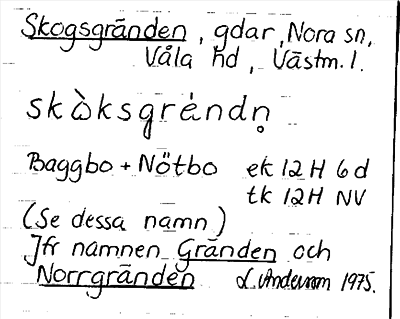 Skogsgränden, gdar, Nora sn,
Våla hd, Västm. l.
skòksgrèndn̥
Baggbo + Nötbo ek 12 H 6 d
tk 12H NV
(Se dessa namn)
Jfr namnen Gränden och
Norrgränden L. Andersson 1975.